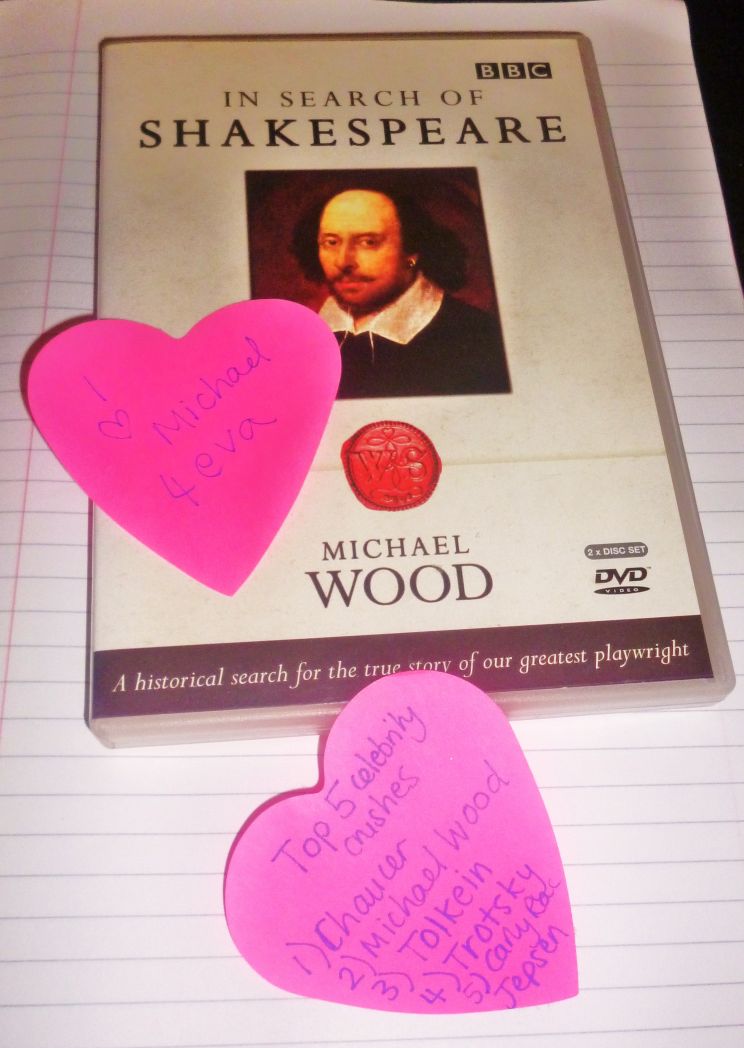 BBC
IN SEARCH OF
SHAKESPEARE
I
♡ Michael
4 eva
W S
MICHAEL
WOOD
2 x DISC SET
DVD™
VIDEO
A historical search for the true story of our greatest playwright
Top 5 celebrity
crushes
1) Chaucer
2) Michael Wood
3) Tolkein
4) Trotsky
5) Carly Rae
Jepsen